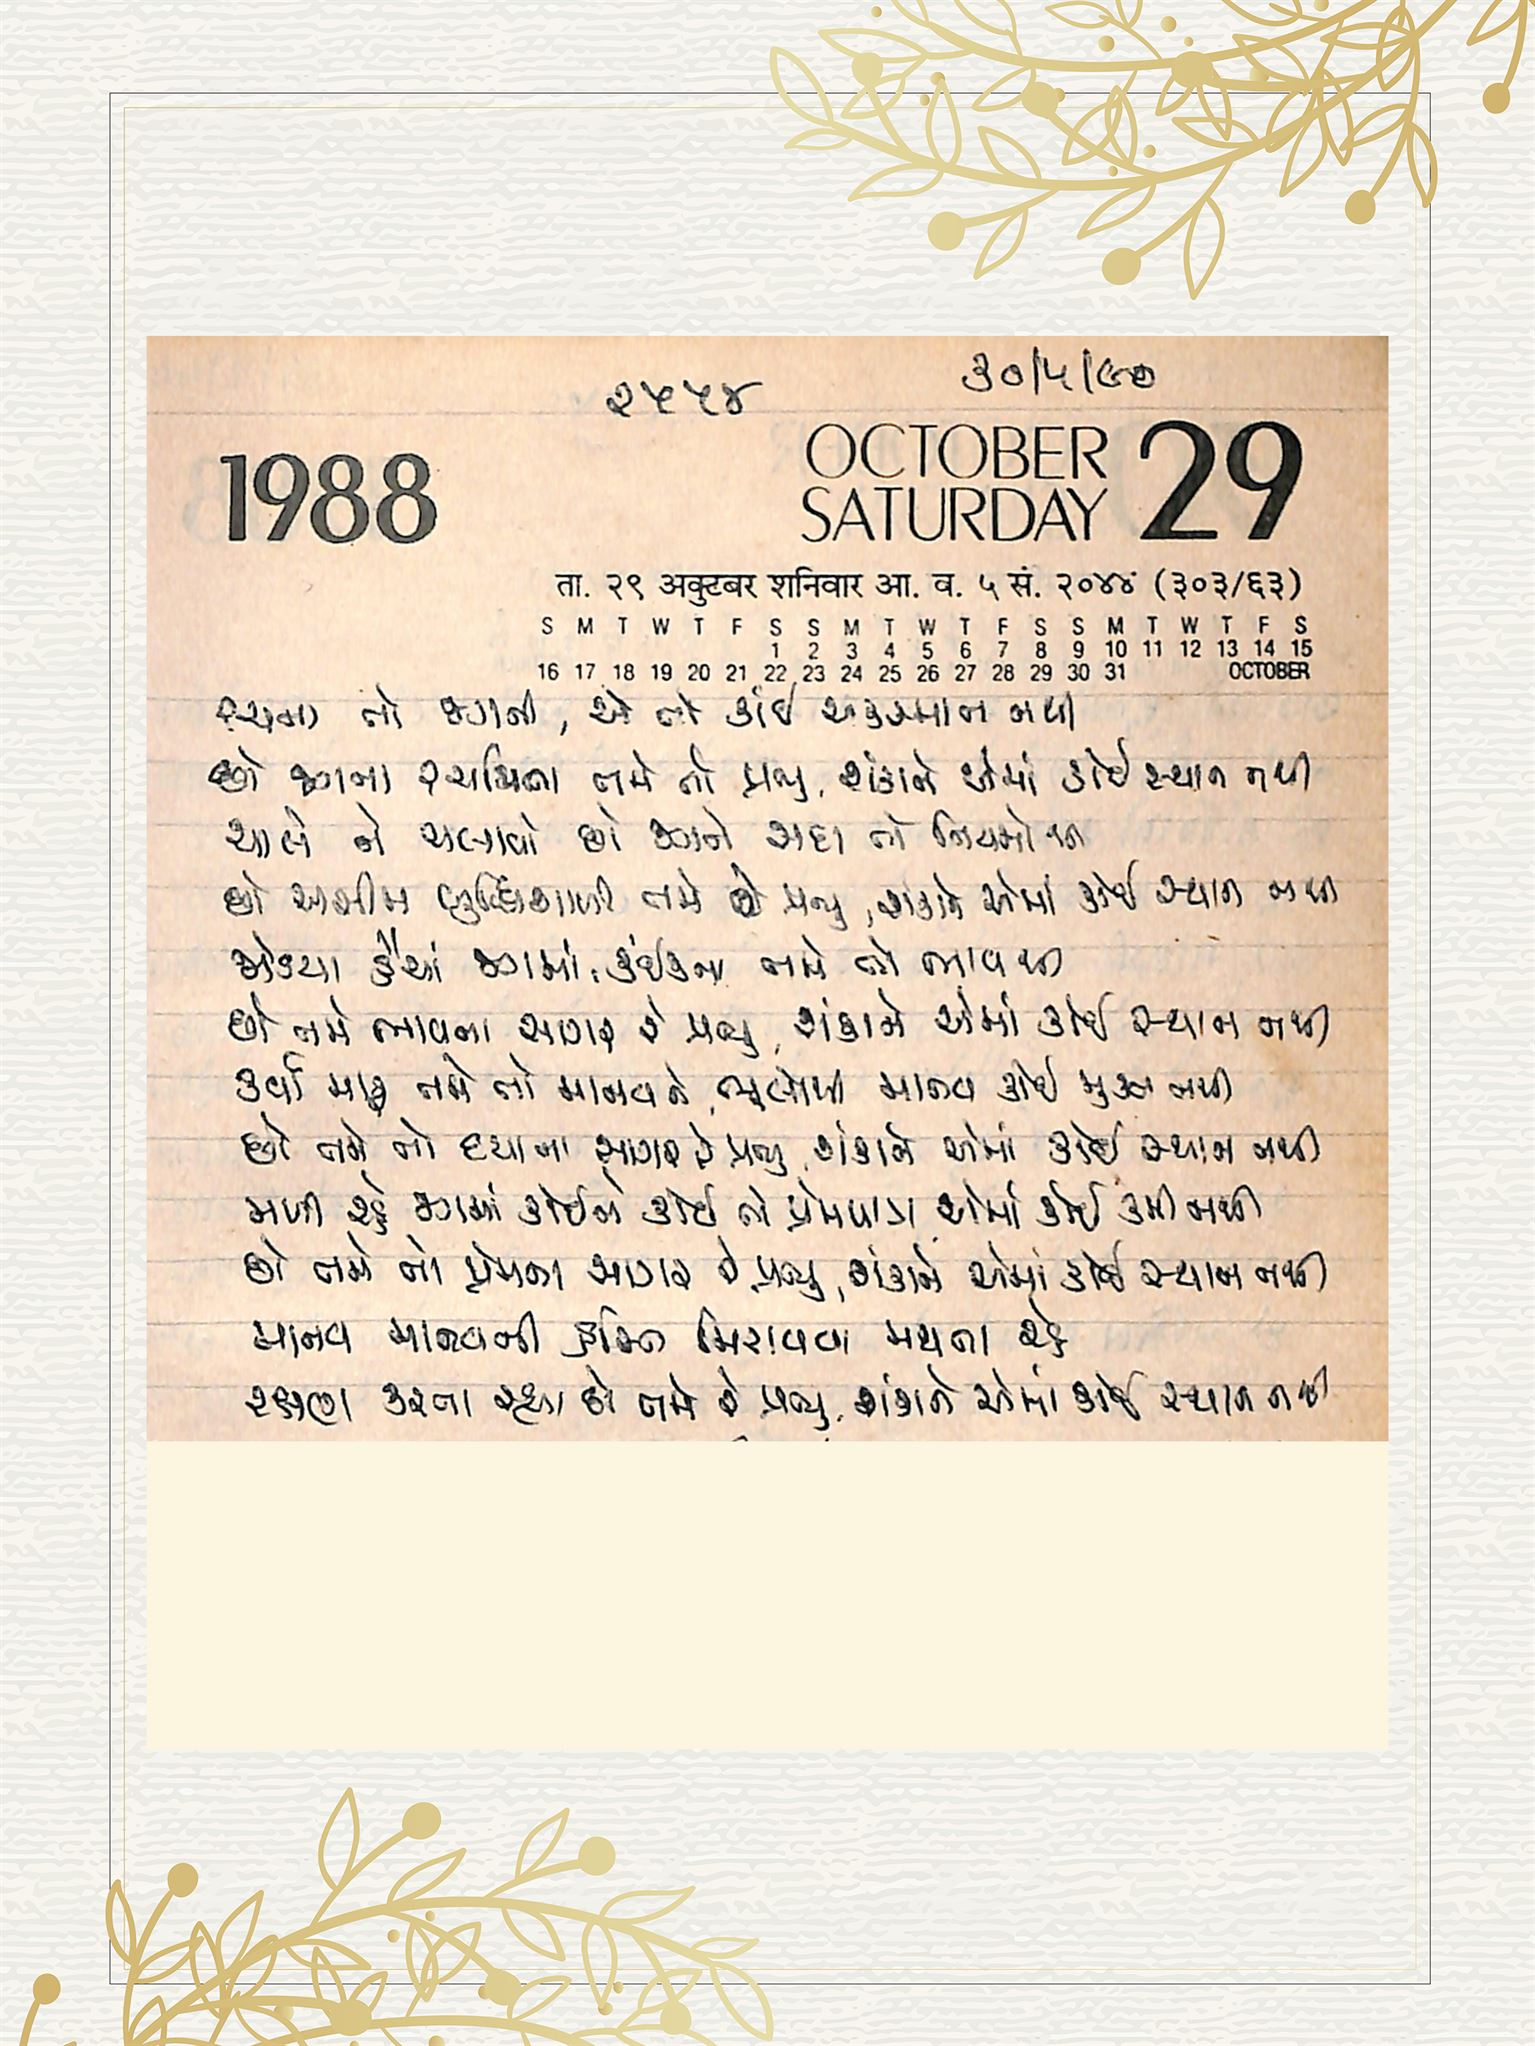 ૨૫૫૪
૩૦/૫/૯૦
1988
OCTOBER 29
SATURDAY
ता. २९ अक्टुबर शनिवार आ. व. ५ सं. २०४४ (३०३/६३)
S M T W T F S S M T W T F S S M T W T F S
1 2 3 4 5 6 7 8 9 10 11 12 13 14 15
16 17 18 19 20 21 22 23 24 25 26 27 28 29 30 31 OCTOBER
રચના તો જગની, એ તો કાંઈ અકસ્માત નથી
છો જગના રચયિતા તમે તો પ્રભુ, શંકાને એમાં કોઈ સ્થાન નથી
ચાલે ને ચલાવો છો જગને સદા તો નિયમોથી
છો અસીમ બુદ્ધિશાળી તમે રે પ્રભુ, શંકાને એમાં કોઈ સ્થાન નથી
જોડયા હૈયાં જગમાં, કંઈકના તમે તો ભાવથી
છો તમે ભાવના સાગર રે પ્રભુ, શંકાને એમાં કોઈ સ્થાન નથી
કર્યા માફ તમે તો માનવને, ભૂલોથી માનવ કોઈ મુક્ત નથી
છો તમે તો દયાના સાગર રે પ્રભુ, શંકાને એમાં કોઈ સ્થાન નથી
મળી રહે જગમાં કોઈને કોઈ તો પ્રેમપાત્ર, એમાં કોઈ કમી નથી
છો તમે તો પ્રેમના સાગર રે પ્રભુ, શંકાને એમાં કોઈ સ્થાન નથી
માનવ માનવની હસ્તિ મિટાવવા મથતા રહે
રક્ષણ કરતા રહ્યા છો તમે રે પ્રભુ, શંકાને એમાં કોઈ સ્થાન નથી